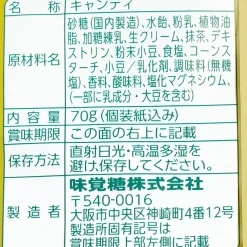 名称 キャンディ
原材料名 砂糖(国内製造)、水飴、粉乳、植物油
脂、加糖練乳、生クリーム、抹茶、デキ
ストリン、粉末小豆、食塩、コーンス
ターチ、小豆/乳化剤、調味料(無機
塩)、香料、酸味料、塩化マグネシウム、
(一部に乳成分・大豆を含む)
内容量 70g(個装紙込み)
賞味期限 この面の右上に記載
保存方法 直射日光・高温多湿を
避け保存してください。
製造者 味覚糖株式会社
〒540-0016
大阪市中央区神崎町4番12号
製造所固有記号は
賞味期限上部左側に記載